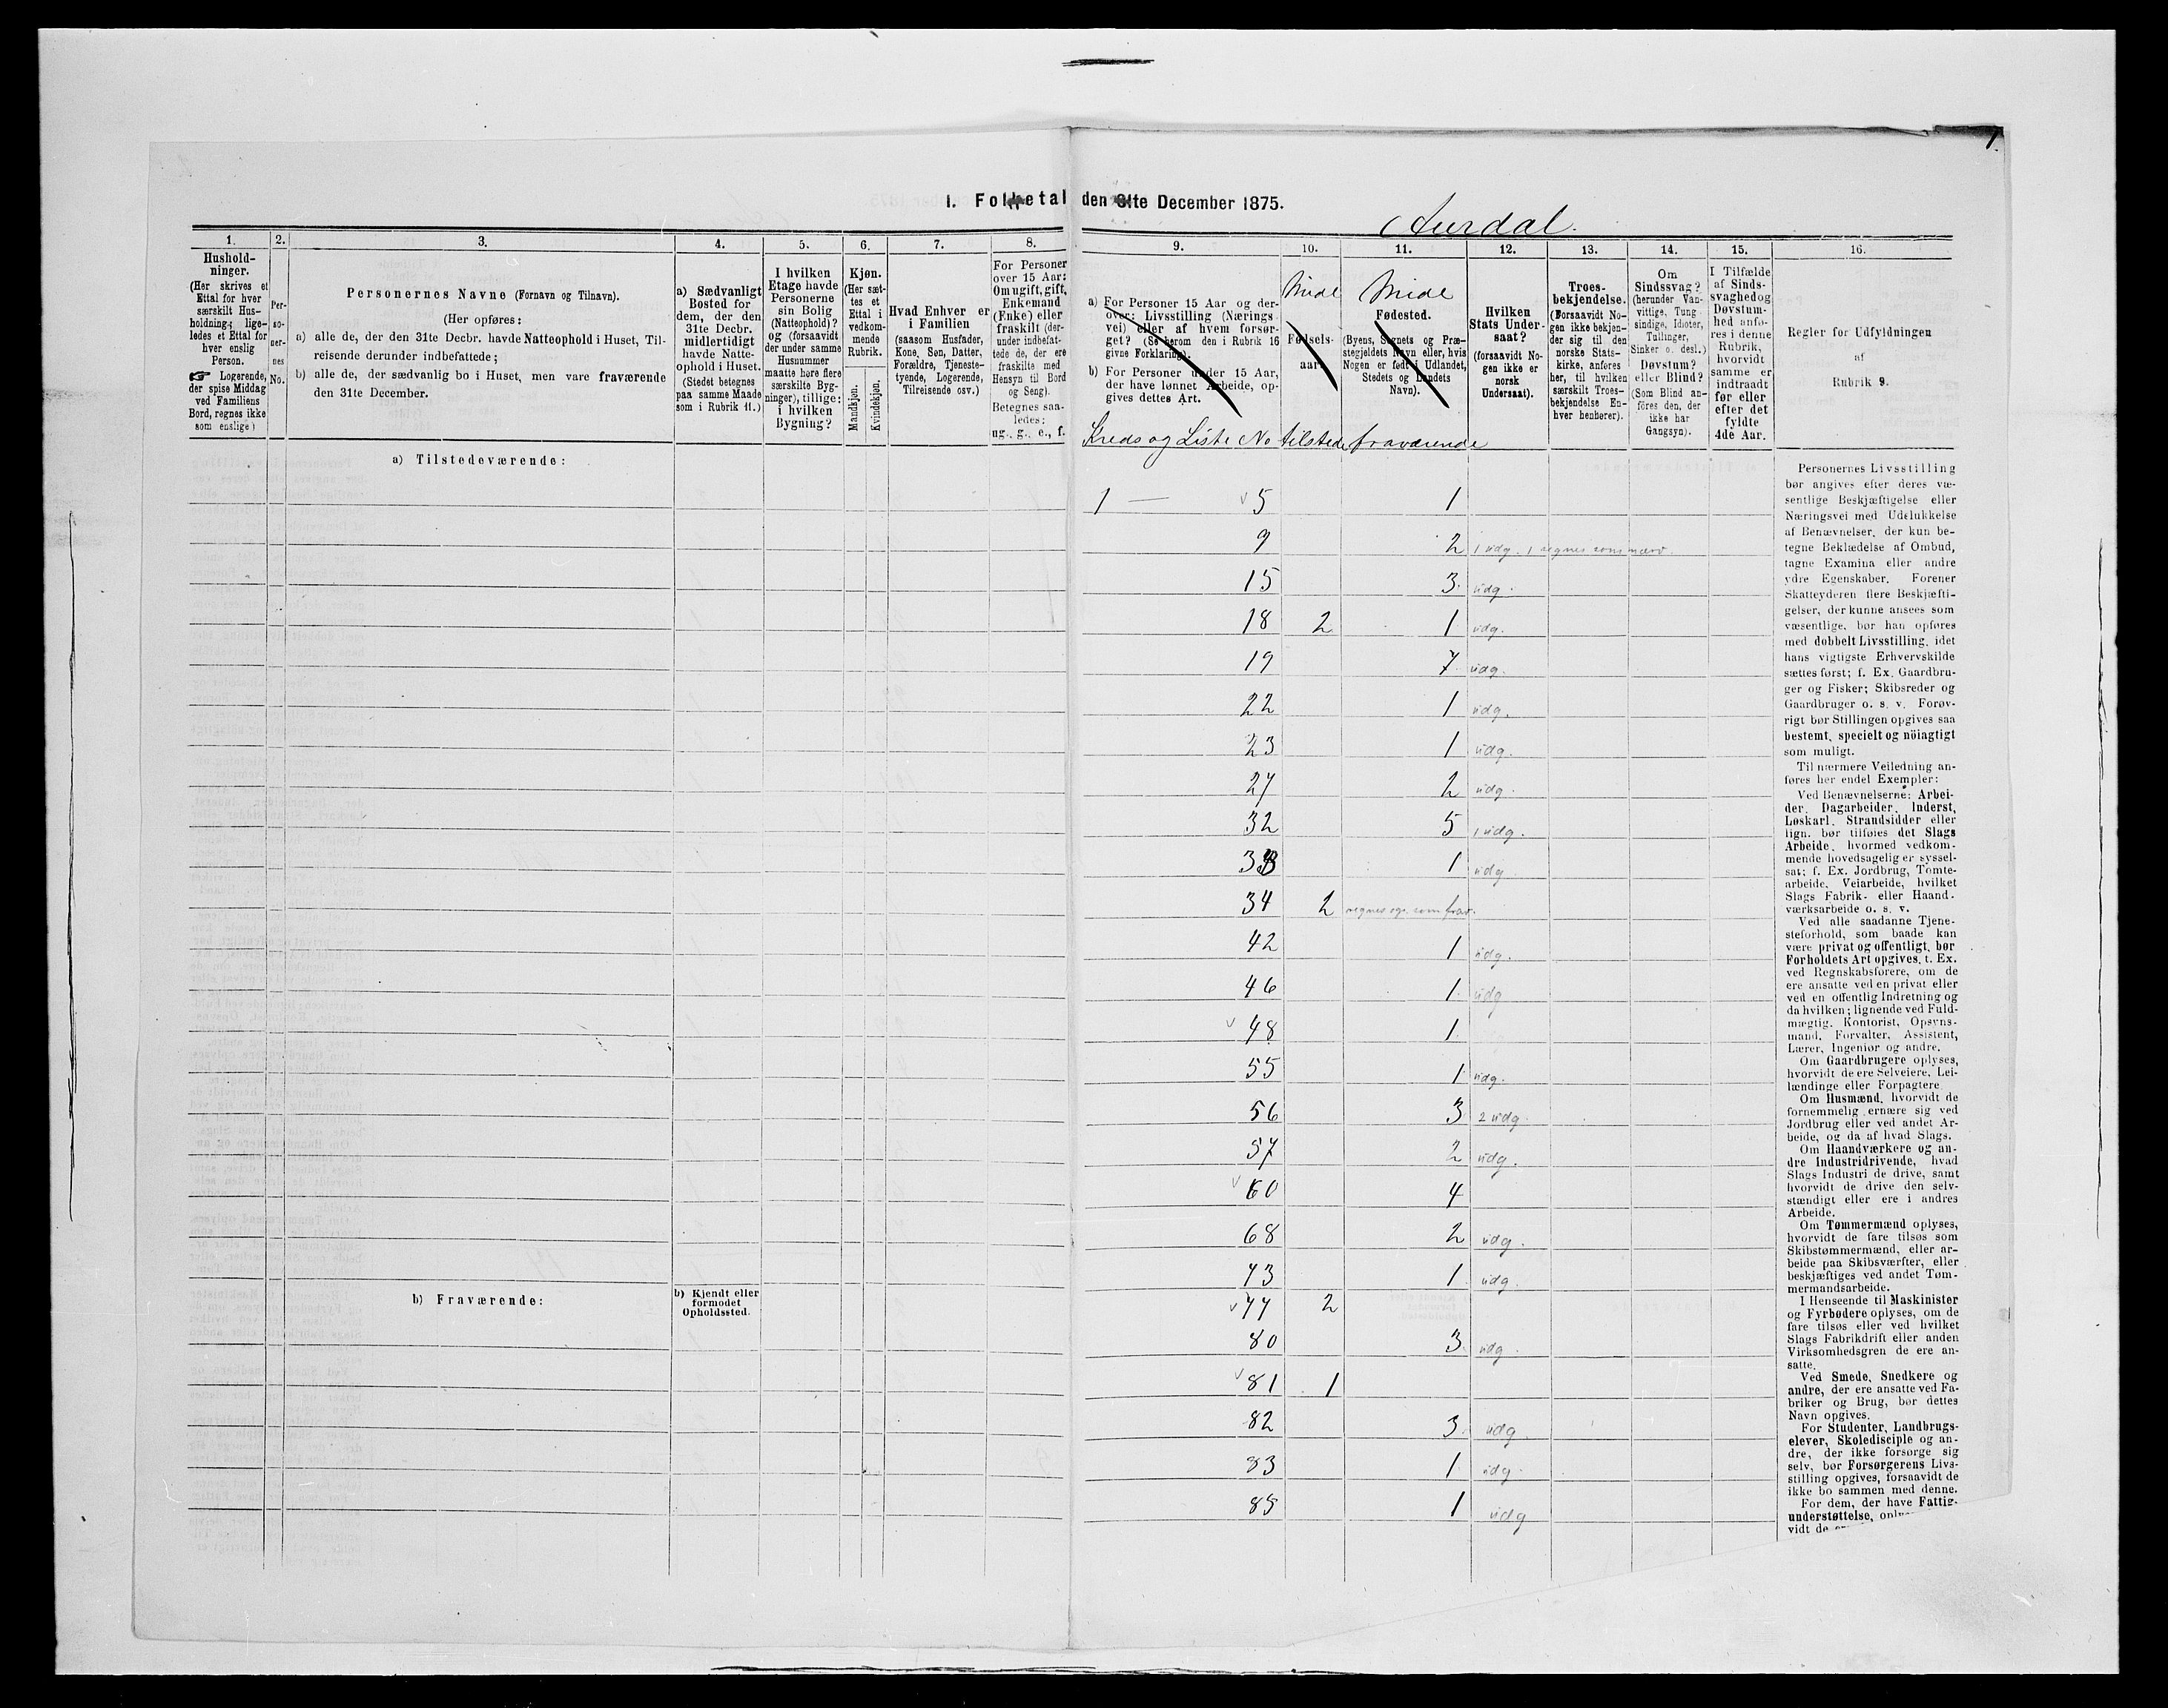 1.
1. Folketal den 31te December 1875.
Aurdal.
1.
Hushold-
ninger.
(Her skrives et
Ettal for hver
særskilt Hus-
holdning; lige-
ledes et Ettal for
hver enslig
Person.
☞ Logerende,
der spise Middag
ved Familiens
Bord, regnes ikke
som enslige)
2.
Per-
so-
ner-
nes
No.
3.
Personernes Navne (Fornavn og Tilnavn).
(Her opføres:
a) alle de, der den 31te Decbr. havde Natteophold i Huset, Til-
reisende derunder indbefattede;
b) alle de, der sædvanlig bo i Huset, men vare fraværende
den 31te December.
4.
a) Sædvanligt
Bosted for
dem, der den
31te Decbr.
midlertidigt
havde Natte-
ophold i Huset.
(Stedet betegnes
paa samme Maade
som i Rubrik 11.)
5.
I hvilken
Etage havde
Personerne
sin Bolig
(Natteophold)?
og (forsaavidt
der under samme
Husnummer
maatte høre flere
særskilte Byg-
ninger), tillige:
i hvilken
Bygning?
6.
Kjøn.
(Her sæt-
tes et
Ettal i
vedkom-
mende
Rubrik.
Mandkjøn.
Kvindekjøn.
7.
Hvad Enhver er
i Familien
(saasom Husfader,
Kone, Søn, Datter,
Forældre, Tjeneste-
tyende, Logerende,
Tilreisende osv.)
8.
For Personer
over 15 Aar:
Om ugift, gift,
Enkemand
(Enke) eller
fraskilt (der-
under indbefat-
tede de, der ere
fraskilte med
Hensyn til Bord
og Seng).
Betegnes saa-
ledes:
ug., g., e., f.
9.
a) For Personer 15 Aar og der-
over: Livsstilling (Nærings-
vei) eller af hvem forsør-
get? (Se herom den i Rubrik 16
givne Forklaring).
b) For Personer under 15 Aar,
der have lønnet Arbeide, op-
gives dettes Art.
10.
Fødsels-
aar.
11.
Fødested.
(Byens, Sognets og Præ-
stegjeldets Navn eller, hvis
Nogen er født i Udlandet,
Stedets og Landets
Navn).
12.
Hvilken
Stats Under-
saat?
(forsaavidt No-
gen ikke er
norsk
Undersaat).
13.
Troes-
bekjendelse.
(Forsaavidt No-
gen ikke bekjen-
der sig til den
norske Stats-
kirke, anføres
her, til hvilken
særskilt Troes-
bekjendelse En-
hver henhører).
14.
Om
Sindssvag?
(herunder Van-
vittige, Tung-
sindige, Idioter,
Tullinger,
Sinker o. desl.)
Døvstum?
eller Blind?
(Som Blind an-
føres den, der
ikke har
Gangsyn).
15.
I Tilfælde
af Sinds-
svaghed og
Døvstum-
hed anfø-
res i denne
Rubrik,
hvorvidt
samme er
indtraadt
før eller
efter det
fyldte
4de Aar.
16.
Regler for Udfyldningen
af
Rubrik 9.
Kreds og Liste No tilstede fraværende
a) Tilstedeværende:
1 — v 5 1
9 2 1 udg. 1 regnes som nærv
15 3. udg.
18 2 1 udg.
19 7 udg.
22 1 udg.
23 1 udg.
27 2 udg.
32 5 1 udg.
33 1 udg
34 2 regnes ogs. som frav.
42 1 udg.
46 1. udg
v 48 1.
55 1 udg.
56 3 2 udg.
57 2 udg.
v 60 4
68 2 udg.
73 1 udg.
v 77 2
80 3. udg.
v 81 1
82 3 udg.
83 1 udg.
85 1 udg
b) Fraværende:
b) Kjendt eller
formodet
Opholdssted.
Personernes Livsstilling
bør angives efter deres væ-
sentlige Beskjæftigelse eller
Næringsvei med Udelukkelse
af Benævnelser, der kun be-
tegne Beklædelse af Ombud,
tagne Examina eller andre
ydre Egenskaber. Forener
Skatteyderen flere Beskjæfti-
gelser, der kunne ansees som
væsentlige, bør han opføres
med dobbelt Livsstilling, idet
hans vigtigste Erhvervskilde
sættes først; f. Ex. Gaardbru-
ger og Fisker; Skibsreder og
Gaardbruger o. s. v. Forøv-
rigt bør Stillingen opgives saa
bestemt, specielt og nöiagtigt
som muligt.
Til nærmere Veiledning an-
føres her endel Exempler:
Ved Benævnelserne: Arbei-
der, Dagarbeider, Inderst,
Løskarl, Strandsidder eller
lign. bør tilføies det Slags
Arbeide, hvormed vedkom-
mende hovedsagelig er syssel-
sat; f. Ex. Jordbrug, Tomte-
arbeide, Veiarbeide, hvilket
Slags Fabrik- eller Haand-
værksarbeide o. s. v.
Ved alle saadanne Tjene-
steforhold, som baade kan
være privat og offentligt, bør
Forholdets Art opgives, t. Ex.
ved Regnskabsførere, om de
ere ansatte ved en privat eller
ved en offentlig Indretning og
da hvilken; lignende ved Fuld-
mægtig, Kontorist, Opsyns-
mand, Forvalter, Assistent,
Lærer, Ingeniør og andre.
Om Gaardbrugere oplyses,
hvorvidt de ere Selveiere, Lei-
lændinge eller Forpagtere.
Om Husmænd, hvorvidt de
fornemmelig ernære sig ved
Jordbrug eller ved andet Ar-
beide, og da af hvad Slags.
Om Haandværkere og an-
dre Industridrivende, hvad
Slags Industri de drive, samt
hvorvidt de drive den selv-
stændigt eller ere i andres
Arbeide.
Om Tømmermænd oplyses,
hvorvidt de fare tilsøs som
Skibstømmermænd, eller ar-
beide paa Skibsværfter, eller
beskjæftiges ved andet Tøm-
mermandsarbeide.
I Henseende til Maskinister
og Fyrbødere oplyses, om de
fare tilsøs eller ved hvilket
Slags Fabrikdrift eller anden
Virksomhedsgren de ere an-
satte.
Ved Smede, Snedkere og
andre, der ere ansatte ved Fa-
briker og Brug, bør dettes
Navn opgives.
For Studenter, Landbrugs-
elever, Skoledisciple og an-
dre, der ikke forsørge sig
selv, bør Forsørgerens Livs-
stilling opgives, forsaavidt de
ikke bo sammen med denne.
For dem, der have Fattig-
understøttelse,
vidt de